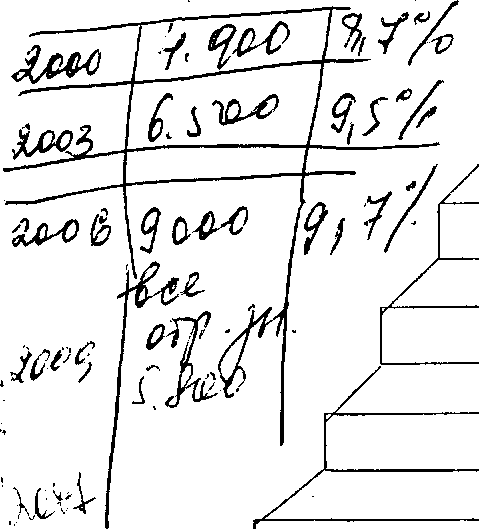 2000 1.900 8,7%
2003 6.500 9,5%
2006 9000 9,7%
+все
отр.
2009 5.800